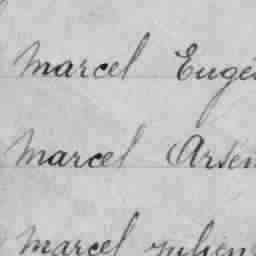 Marcel Eugé
Marcel Arsèn
Marcel Julien